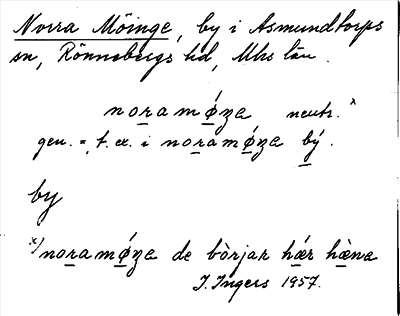 Norra Möinge, by i Asmundtorps
sn, Rönnebergs hd, Mhs län.
noramǿŋa neutr. x
gen. =, t. ex. i noramǿŋa bý.
by
x) noramǿŋa de bòrjar hǽr hæ̀na
I. Ingers 1957.